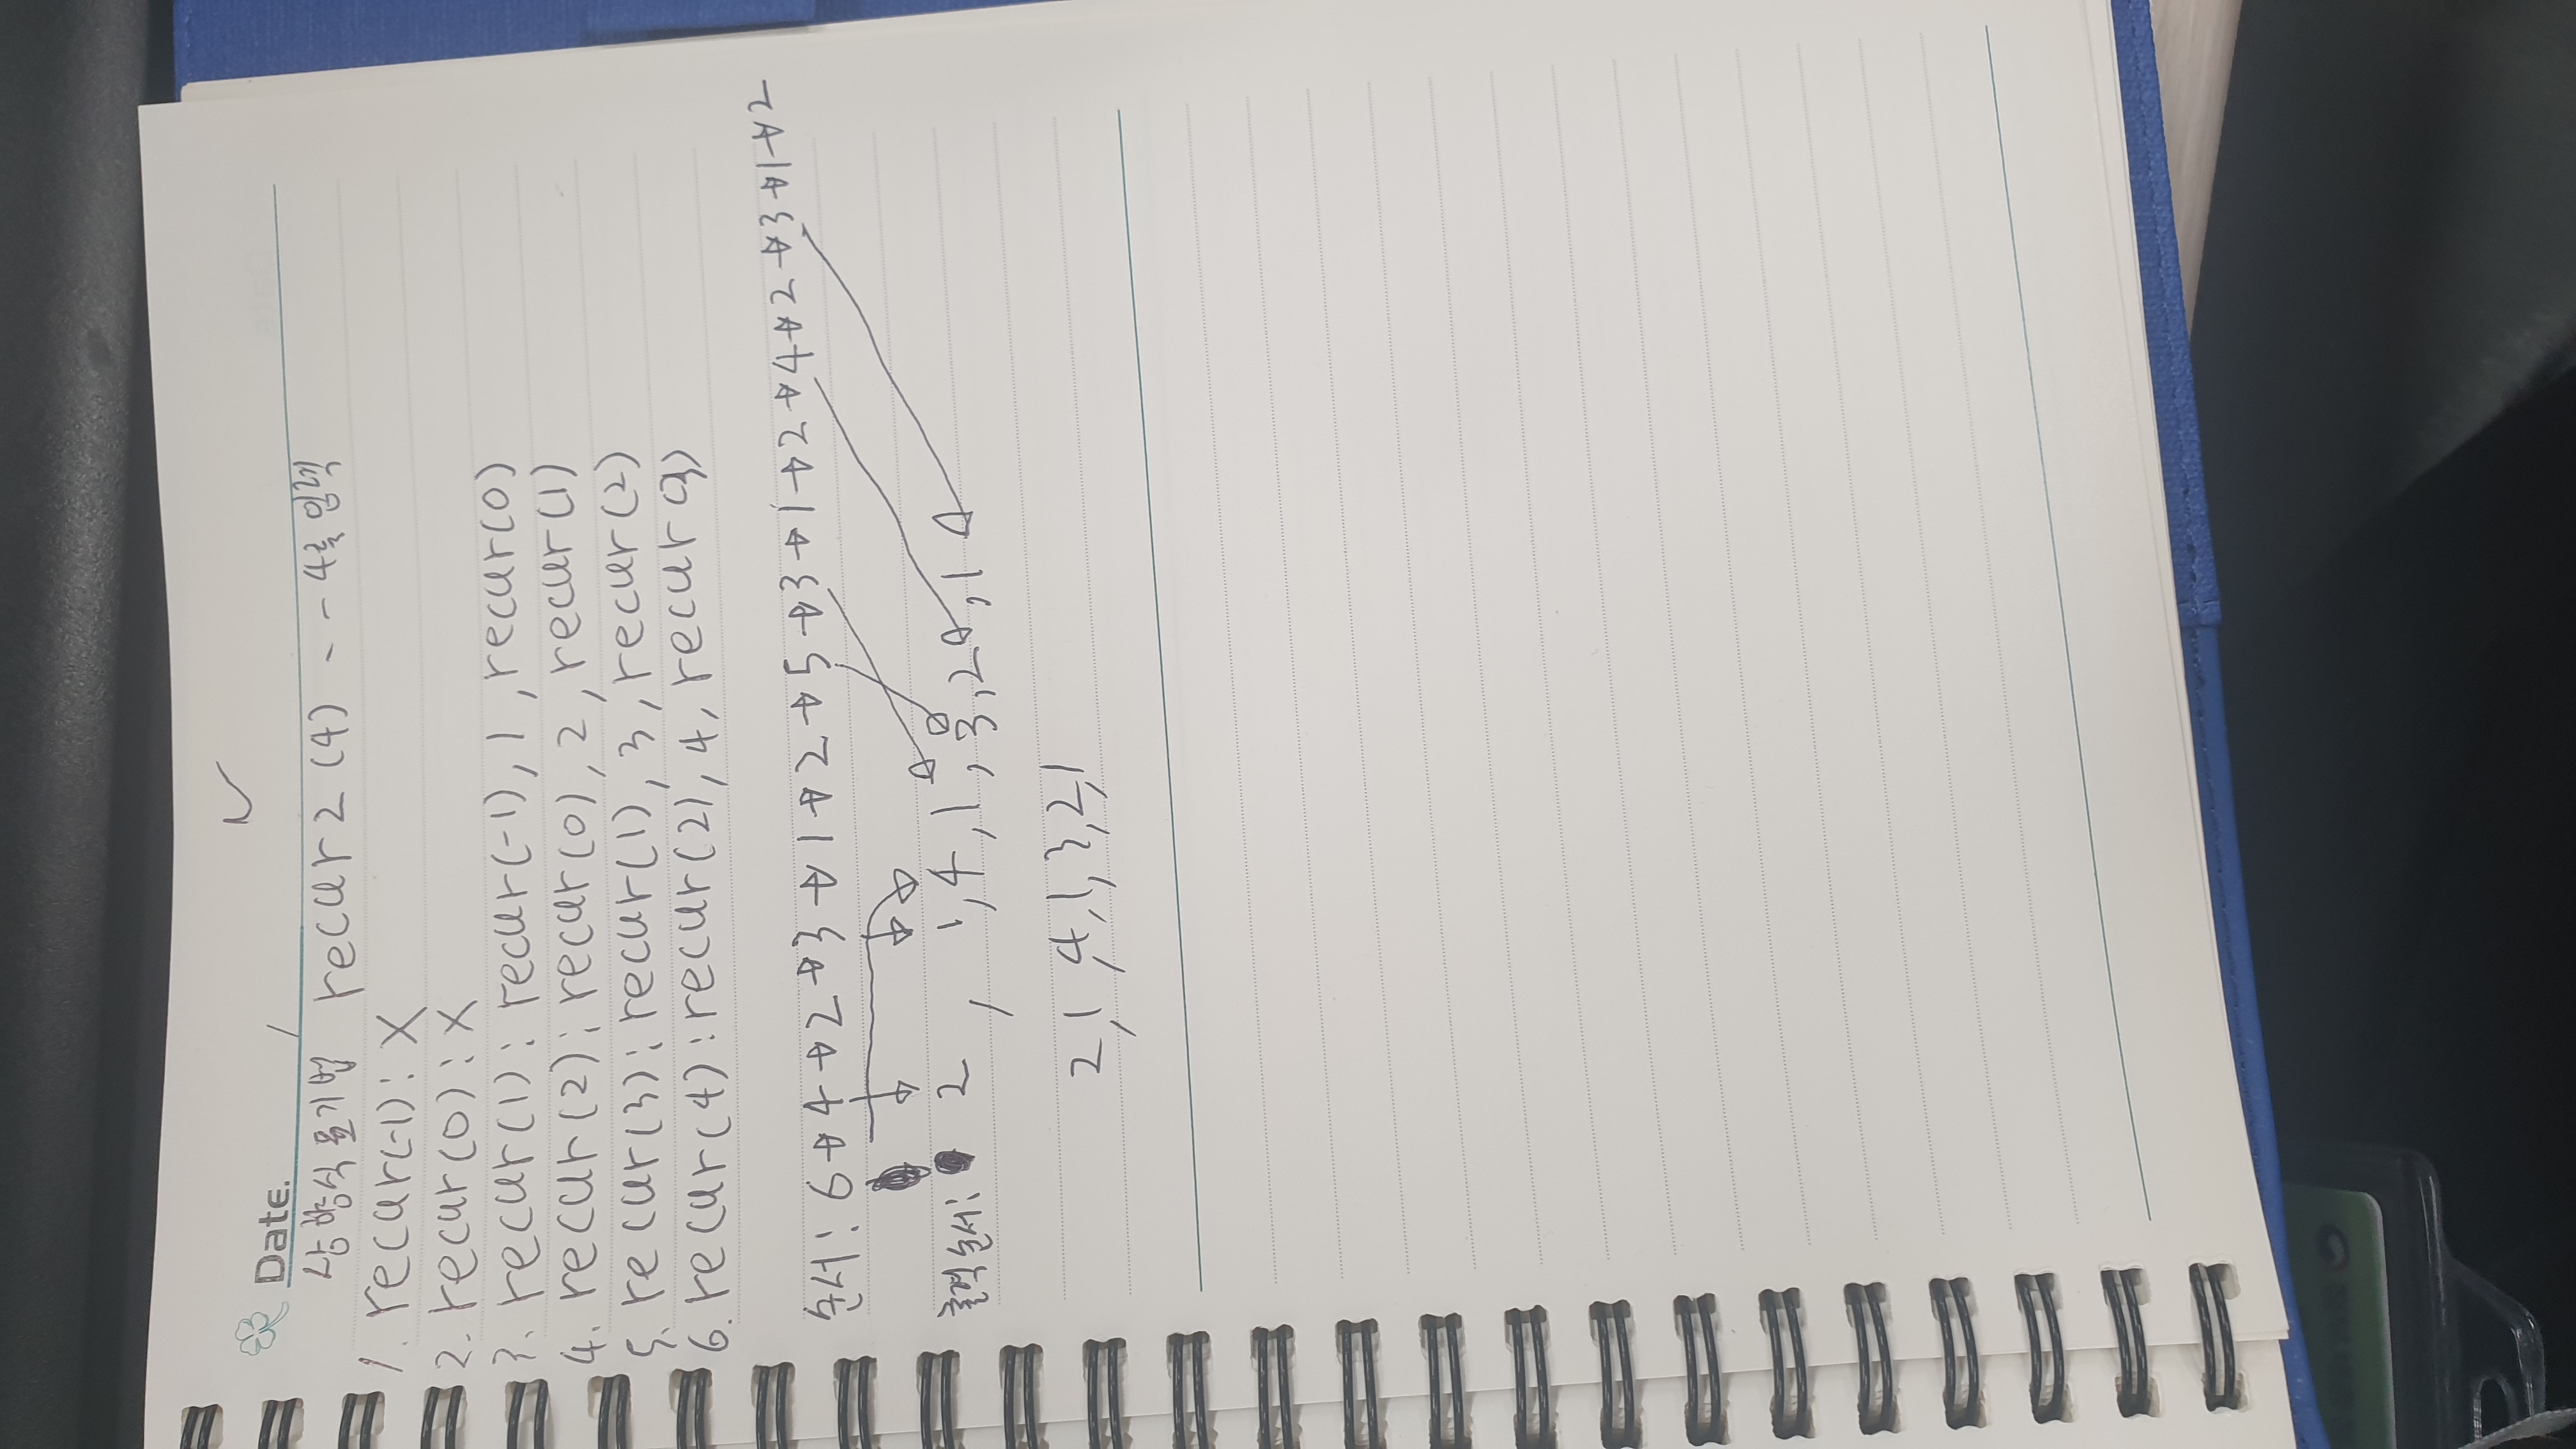 Date. /
상향식 표기법 recur2(4) - - 4를 입력
1. recur(-1): X
2. recur(0): X
3. recur(1): recur(-1), 1, recur(0)
4. recur(2): recur(0), 2, recur(1)
5. recur(3): recur(1), 3, recur(2)
6. recur(4): recur(2), 4, recur(3)
순서: 6→4→2→3→1→2→5→3→1→2→4→2→3→1→2
출력순서: 2, 1, 4, 1, 3, 2, 1
2, 1, 4, 1, 3, 2, 1